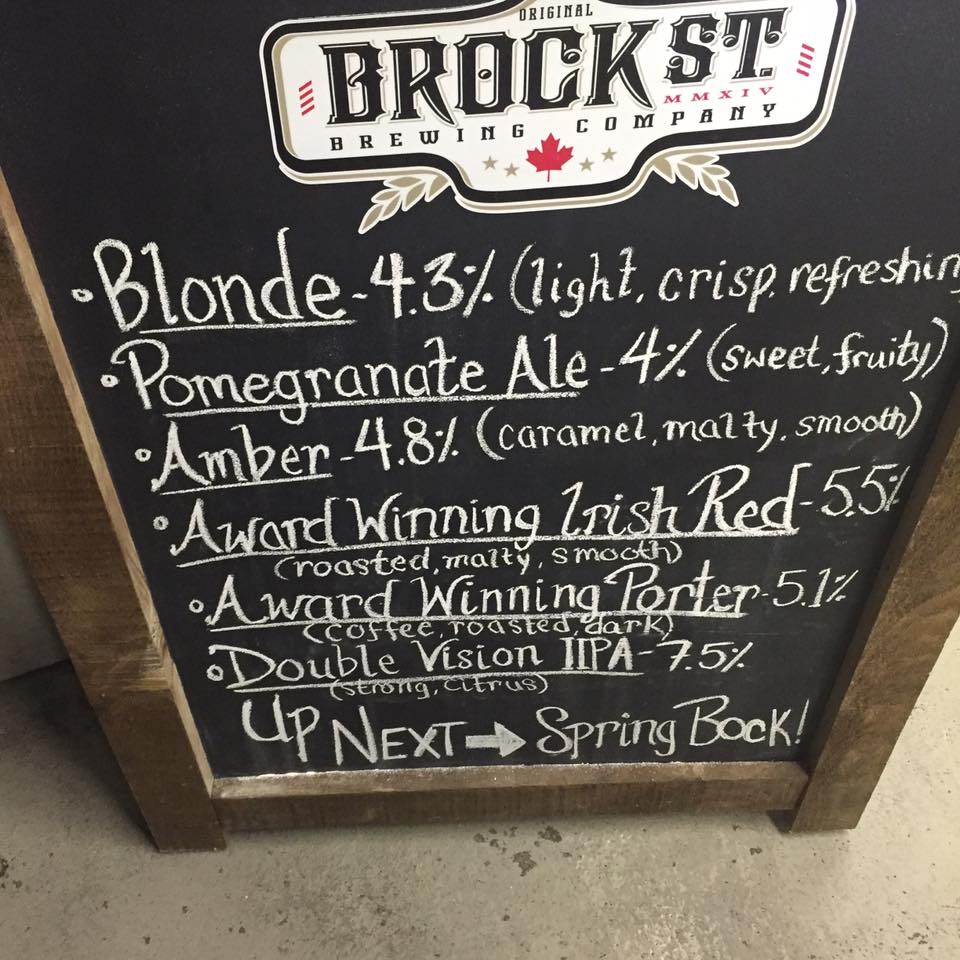 ORIGINAL
BROCK ST.
MMXIV
BREWING COMPANY
Blonde - 4.3% (light, crisp, refreshin
Pomegranate Ale - 4% (sweet, fruity)
Amber - 4.8% (caramel, malty, smooth)
Award Winning Irish Red - 5.5%
(roasted, malty, smooth)
Award Winning Porter - 5.1%
(coffee, roasted, dark)
Double Vision IIPA - 7.5%
(strong, citrus)
UP NEXT → Spring Bock!